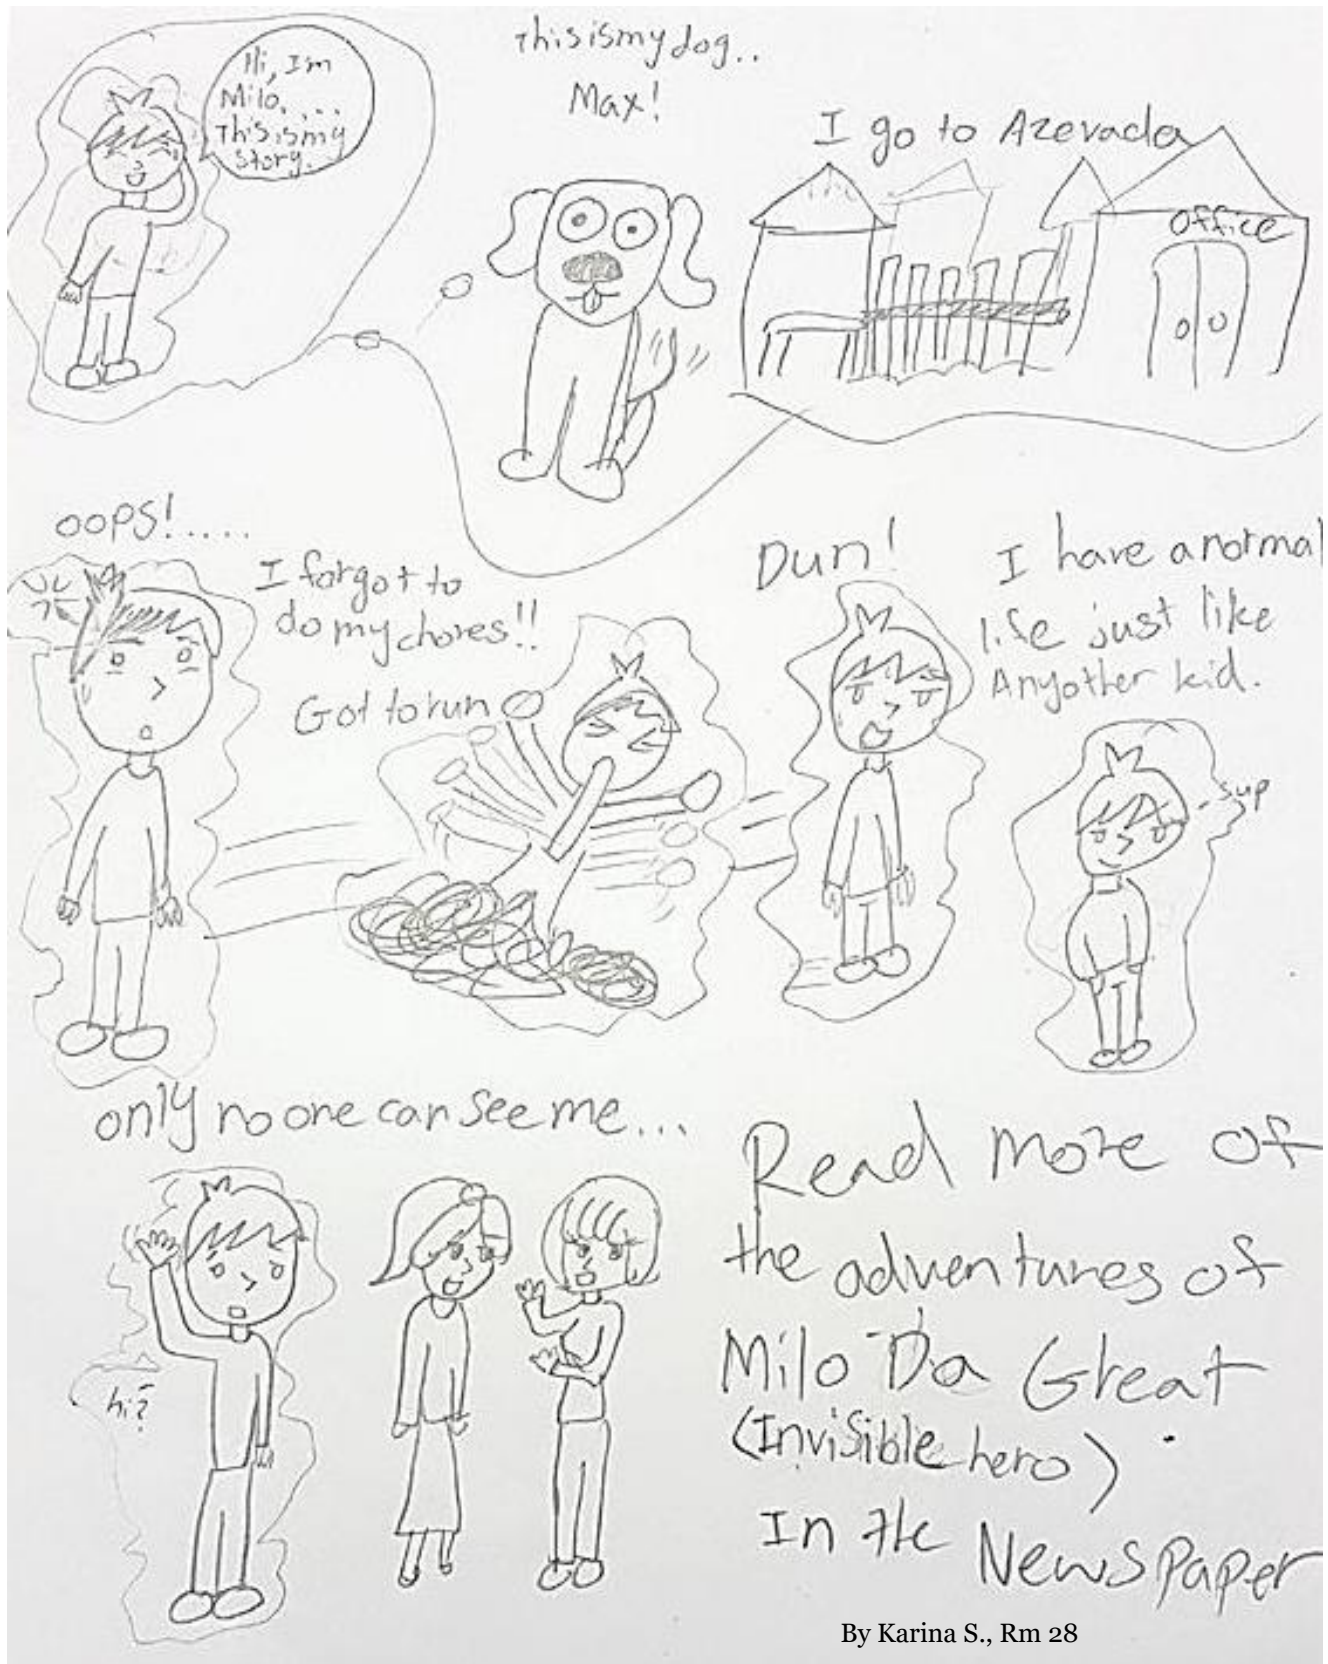 Hi, I'm
Milo....
This is my
story.
This is my dog..
Max!
I go to Azevada
Office
oops!.....
I forgot to
do my chores!!
Got to run
Dun!
I have a normal
life just like
Any other kid.
sup
only no one can see me...
hi?
Read more of
the adventures of
Milo Da Great
(Invisible hero)
In the Newspaper
By Karina S., Rm 28